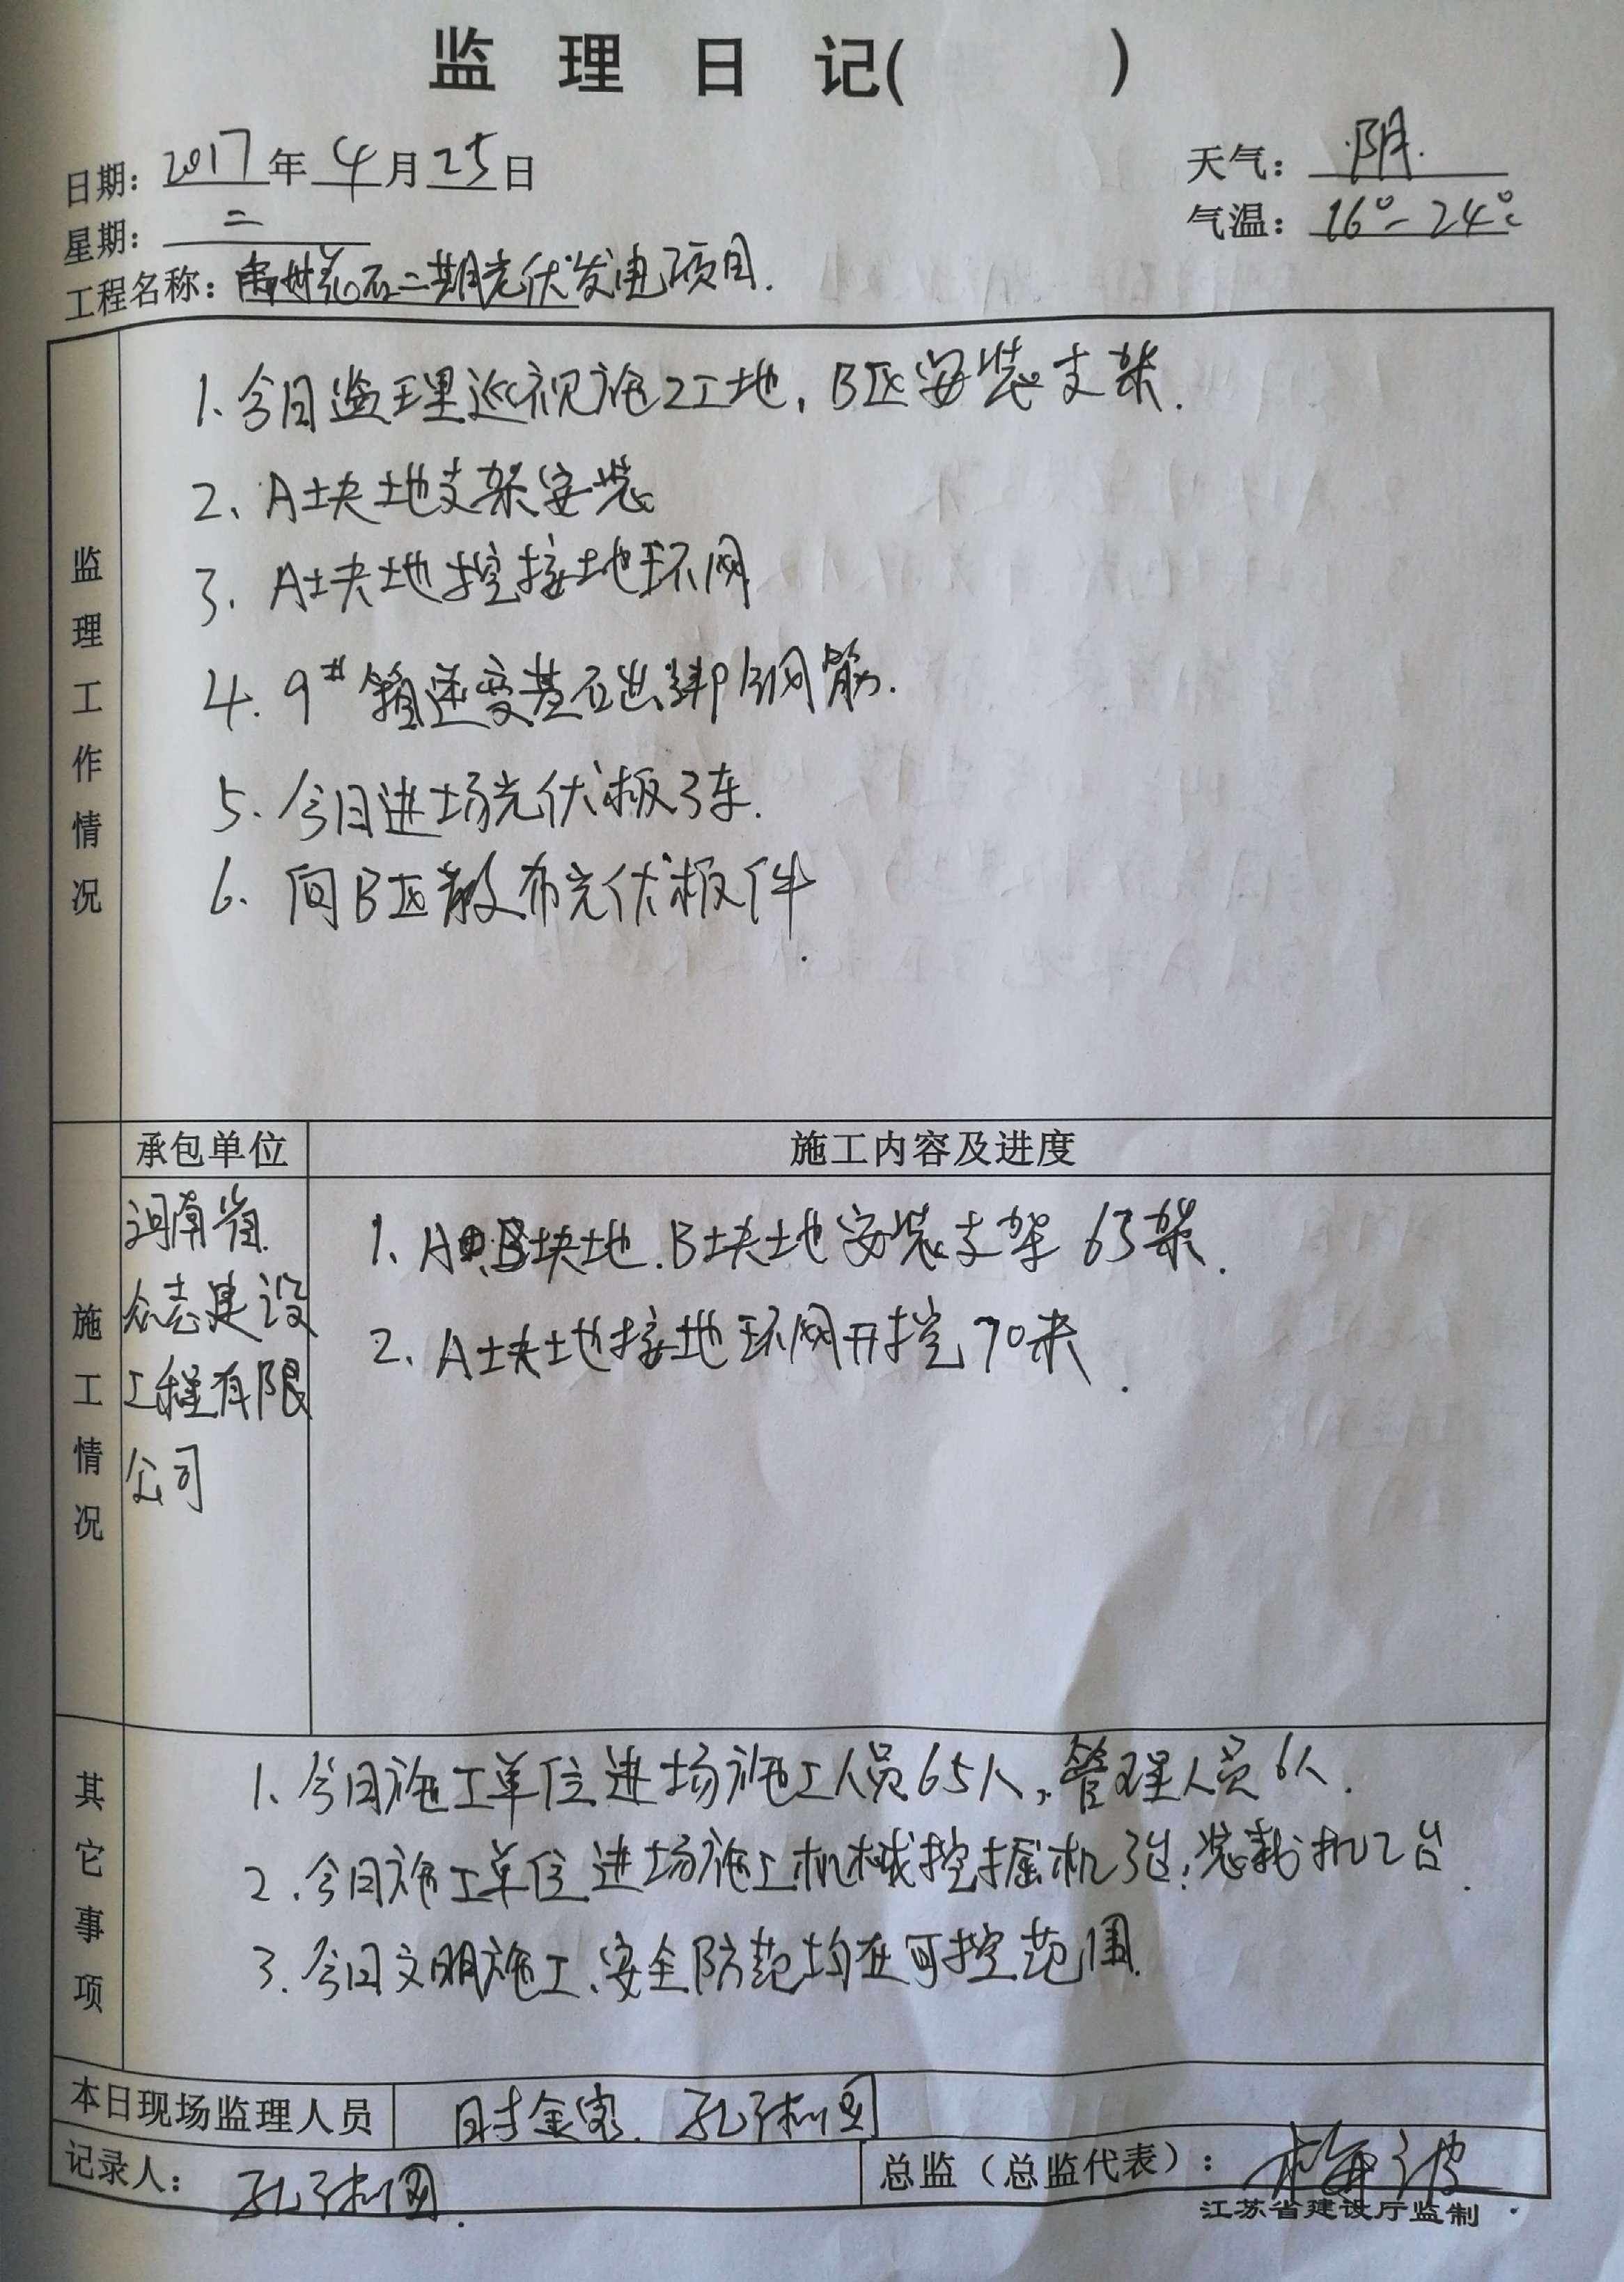 监 理 日 记（ ）
日期：2017年4月25日
天气：阴.
星期：二
气温：16°-24℃
工程名称：禹州苌石二期光伏发电项目.
监理工作情况
1.今日监理巡视施工工地，B区安装支架.
2、A块地支架安装
3、A块地挖接地环网
4.9#箱逆变基础绑钢筋.
5.今日进场光伏板3车.
6.向B区散布光伏板件.
施工情况
承包单位
施工内容及进度
河南省
众志建设
工程有限
公司
1、A块地.B块地安装支架63架.
2、A块地接地环网开挖70米.
其它事项
1、今日施工单位进场施工人员65人，管理人员6人.
2.今日施工单位进场施工机械挖掘机3台；装载机2台.
3.今日文明施工、安全防范均在可控范围.
本日现场监理人员
时金
记录人：
总监（总监代表）：
梅波
江苏省建设厅监制